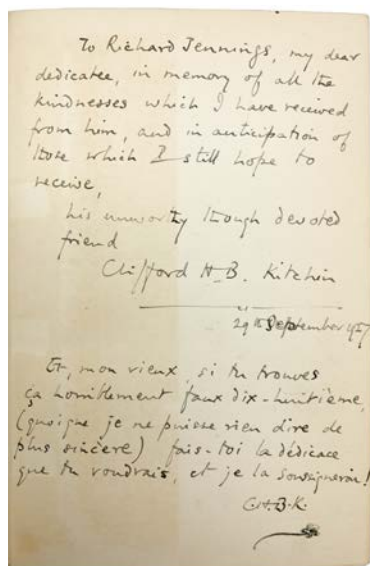 To Richard Jennings, my dear
dedicatee, in memory of all the
kindnesses which I have received
from him, and in anticipation of
those which I still hope to
receive,
his unworthy though devoted
friend
Clifford H. B. Kitchin
29th September 1927
Et, mon vieux, si tu trouves
ça horriblement faux dix-huitième,
(quoique je ne puisse rien dire de
plus sincère) fais-toi la dédicace
que tu voudrais, et je la soussignerai!
C.H.B.K.